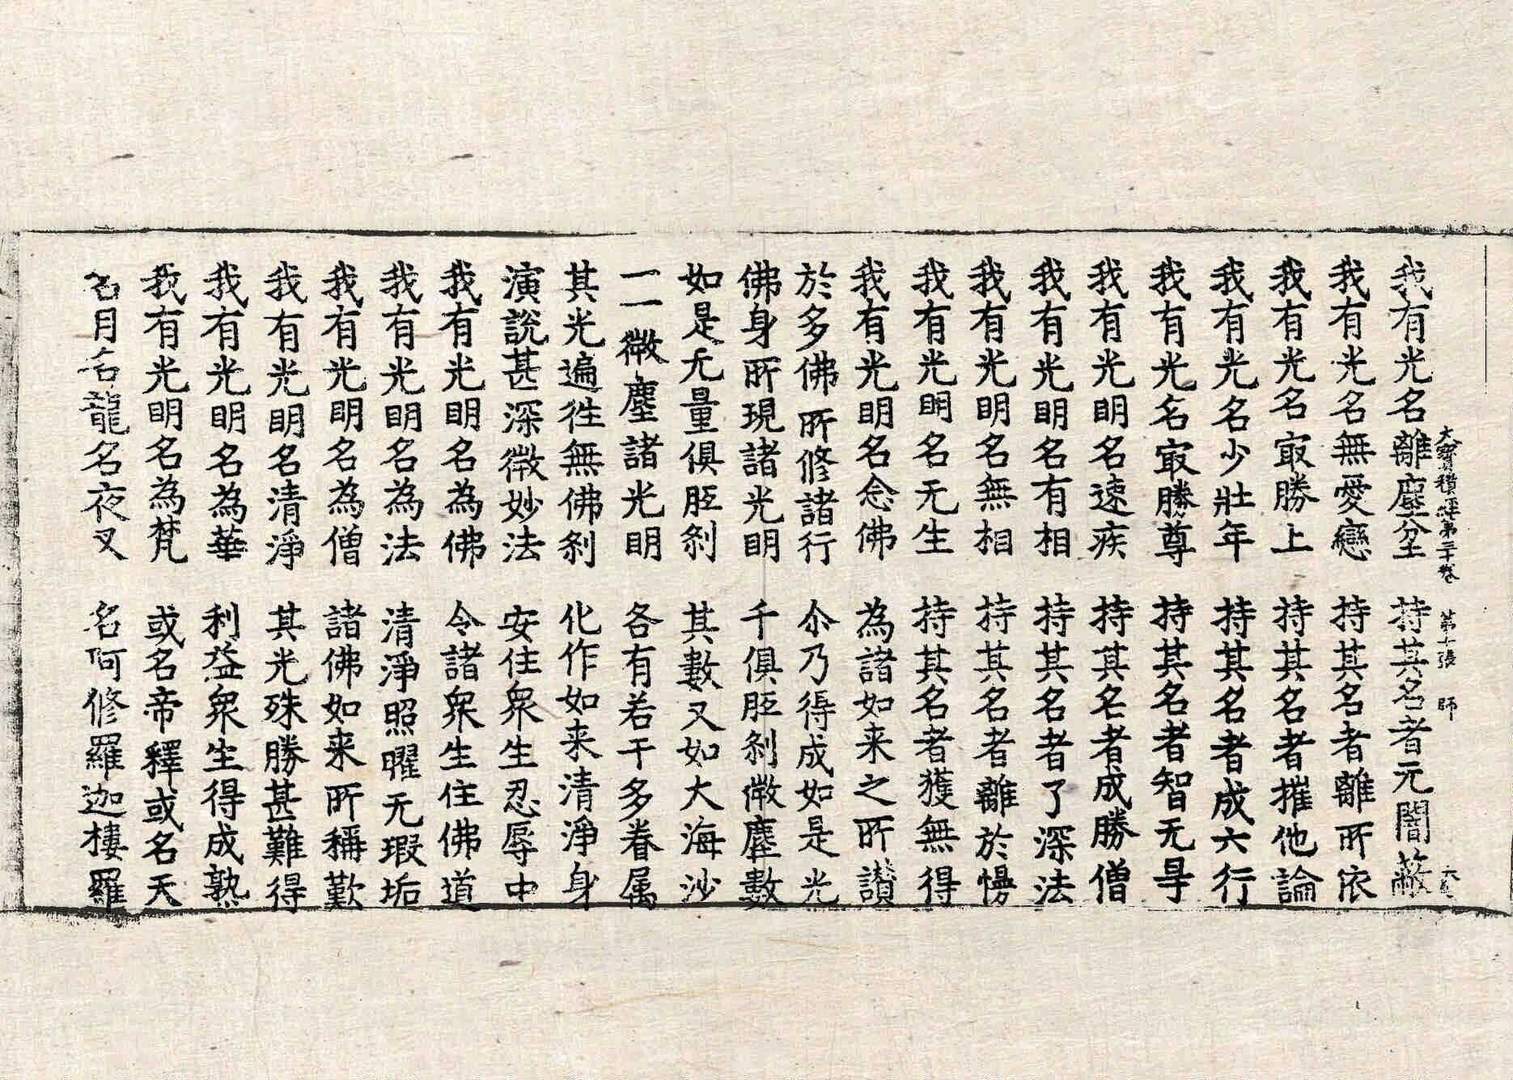 大寶積經第三十卷 第七張 師
我有光名離塵坌 持其名者无闇蔽
我有光名無愛戀 持其名者離所依
我有光名㝡勝上 持其名者摧他論
我有光名少壯年 持其名者成六行
我有光名㝡勝尊 持其名者智无㝵
我有光明名速疾 持其名者成勝僧
我有光明名有相 持其名者了深法
我有光明名無相 持其名者離於慢
我有光明名无生 持其名者獲無得
我有光明名念佛 為諸如来之所讃
於多佛所修諸行 尒乃得成如是光
佛身所現諸光明 千俱胝刹微塵數
如是无量俱胝刹 其數又如大海沙
一一微塵諸光明 各有若干多眷属
其光遍徃無佛刹 化作如来清淨身
演說甚深微妙法 安住衆生忍辱中
我有光明名為佛 令諸衆生住佛道
我有光明名為法 清淨照曜无瑕垢
我有光明名為僧 諸佛如来所稱歎
我有光明名清淨 其光殊勝甚難得
我有光明名為華 利益衆生得成熟
我有光明名為梵 或名帝釋或名天
名月名龍名夜叉 名阿修羅迦樓羅